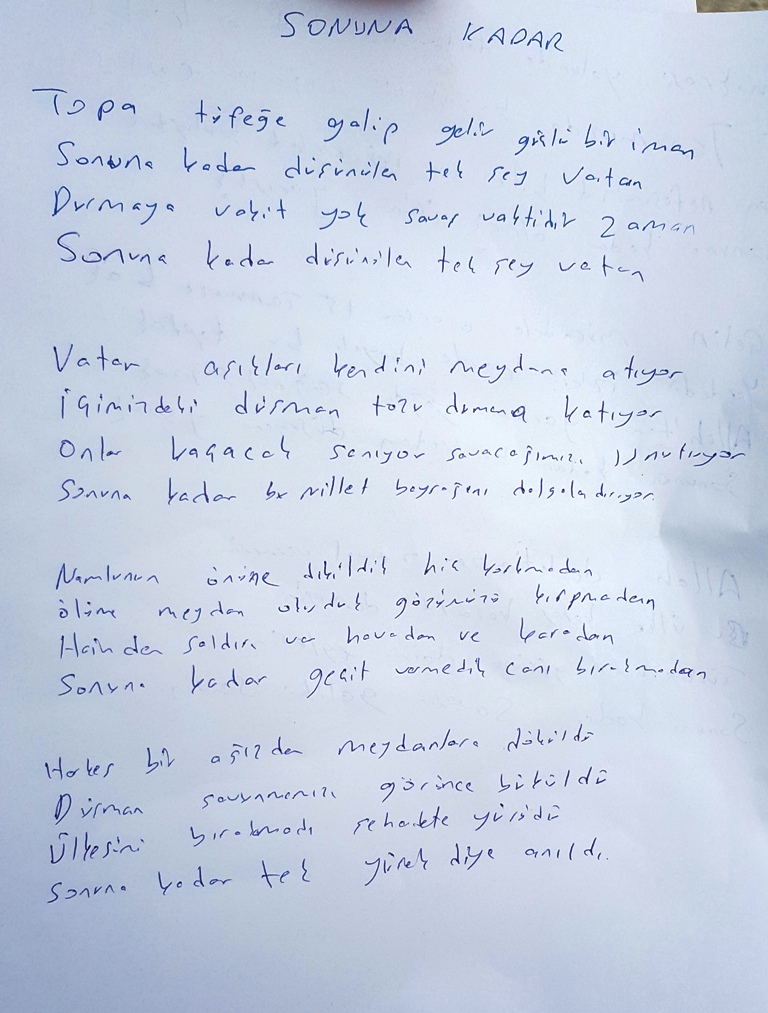 SONUNA KADAR
Topa tüfeğe galip gelir güçlü bir iman
Sonuna kadar düşünülen tek şey vatan
Durmaya vakit yok savaş vaktidir zaman
Sonuna kadar düşünülen tek şey vatan
Vatan aşıkları kendini meydana atıyor
İçimizdeki düşman tozu dumana katıyor
Onlar kaçacak sanıyor savacağımızı unutuyor
Sonuna kadar bu millet bayrağını dalgalandırıyor.
Namlunun önüne dikildik hiç korkmadan
ölüme meydan okuduk gözümüzü kırpmadan
Hainden saldırı var havadan ve karadan
Sonuna kadar geçit vermedik canı bırakmadan
Herkes bir ağızdan meydanlara döküldü
Düşman savunmamızı görünce büküldü
Ülkesini bırakmadı şehadete yürüdü
Sonuna kadar tek yürek diye anıldı.